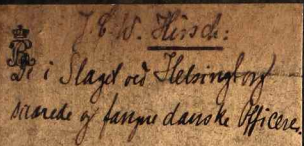 J. C. W. Hirsch:
De i Slaget ved Helsingborg
saarede og fangne danske Officerer.